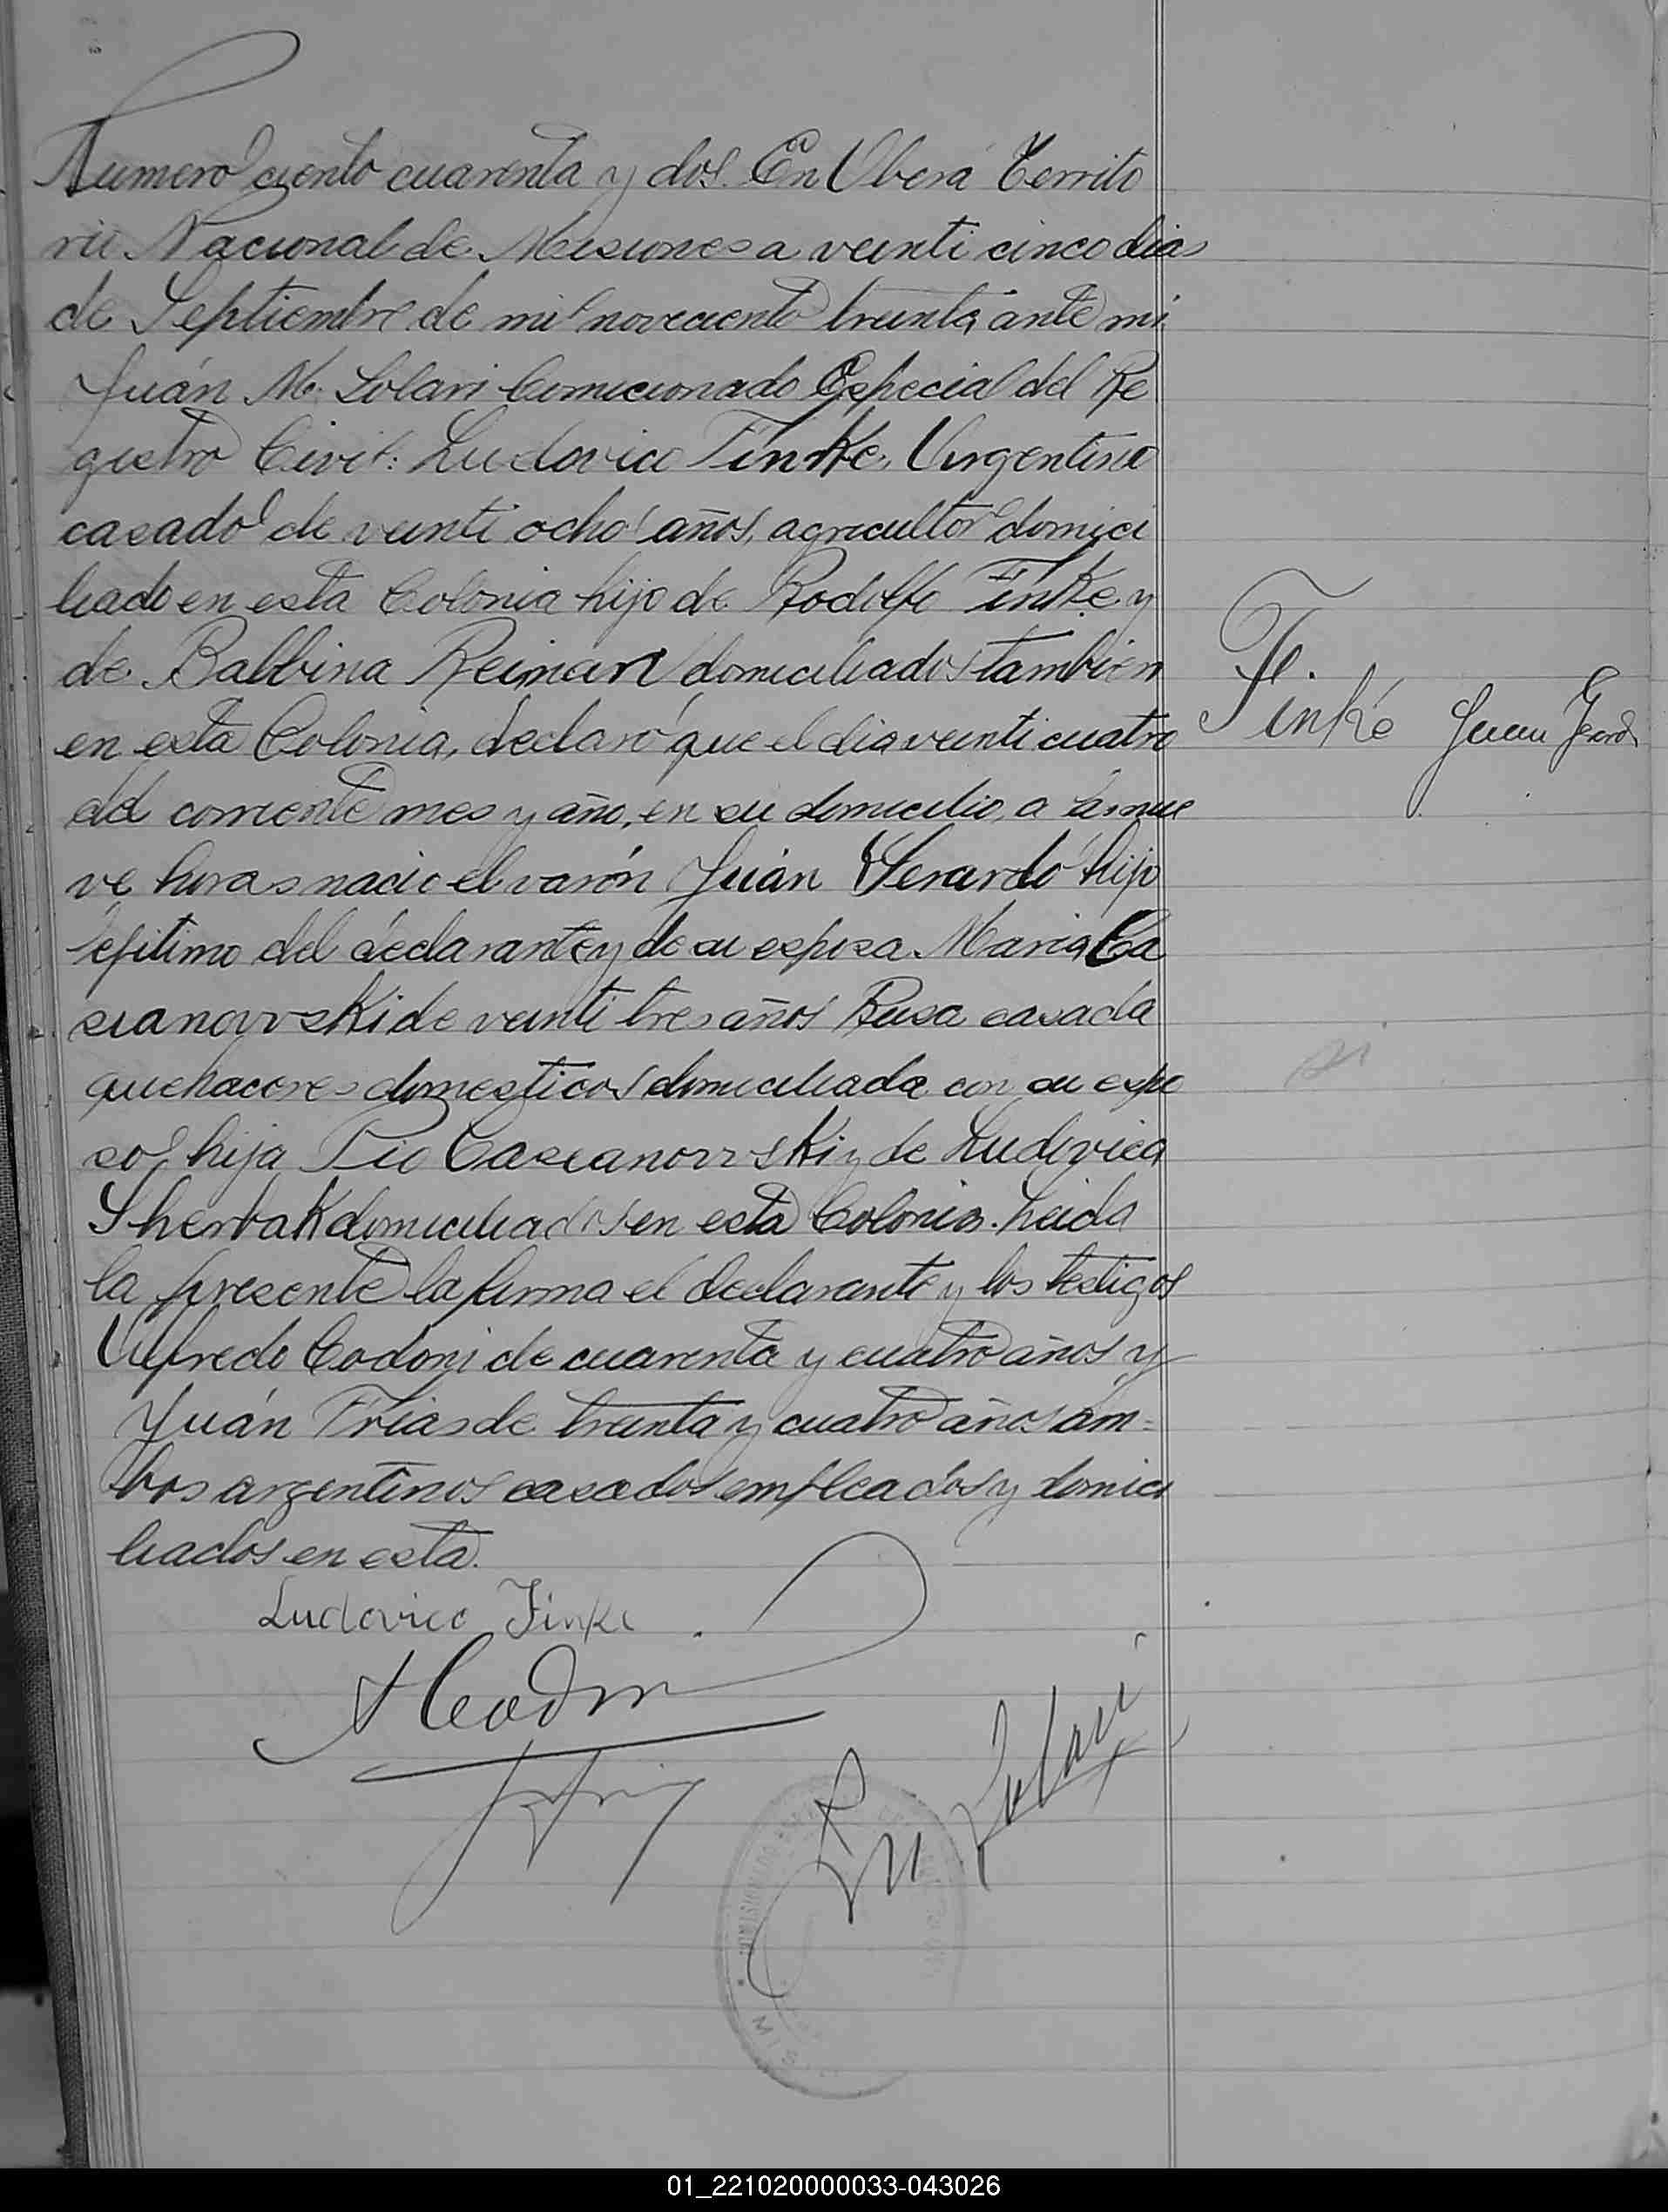 Numero ciento cuarenta y dos. En Oberá Territo
rio Nacional de Misiones a veinti cinco dias
de Septiembre de mil noveciento treinta, ante mi
Juán M. Solari Comicionado Especial del Re
gistro Civil: Ludovico Finke, Argentino
casado de veinti ocho años, agricultor domici
liado en esta Colonia hijo de Rodolfo Finke y
de Balbina Reiman domiciliados tambien
en esta Colonia, declaró que el dia veinti cuatro
del corriente mes y año, en su domicilio, a las nue
ve horas nacio el varón Juán Gerardo hijo
lejitimo del declarante y de su esposa Maria Ca
sianovvski de veinti tres años Rusa casada
quehaceres domesticos domiciliada con su espo
so hija Pio Casianovvski y de Ludovica
Sherbak domiciliados en esta Colonia. Leida
la presente la firma el declarante y los testigos
Alfredo Codoni de cuarenta y cuatro años y
Juán Frias de treinta y cuatro años am=
bos argentinos casados empleados y domici
liados en esta.
Finke Juan Gerardo
Ludovico Finke
ACodoni
JFrias
Solari
COMISIONADO
MIS
01_221020000033-043026